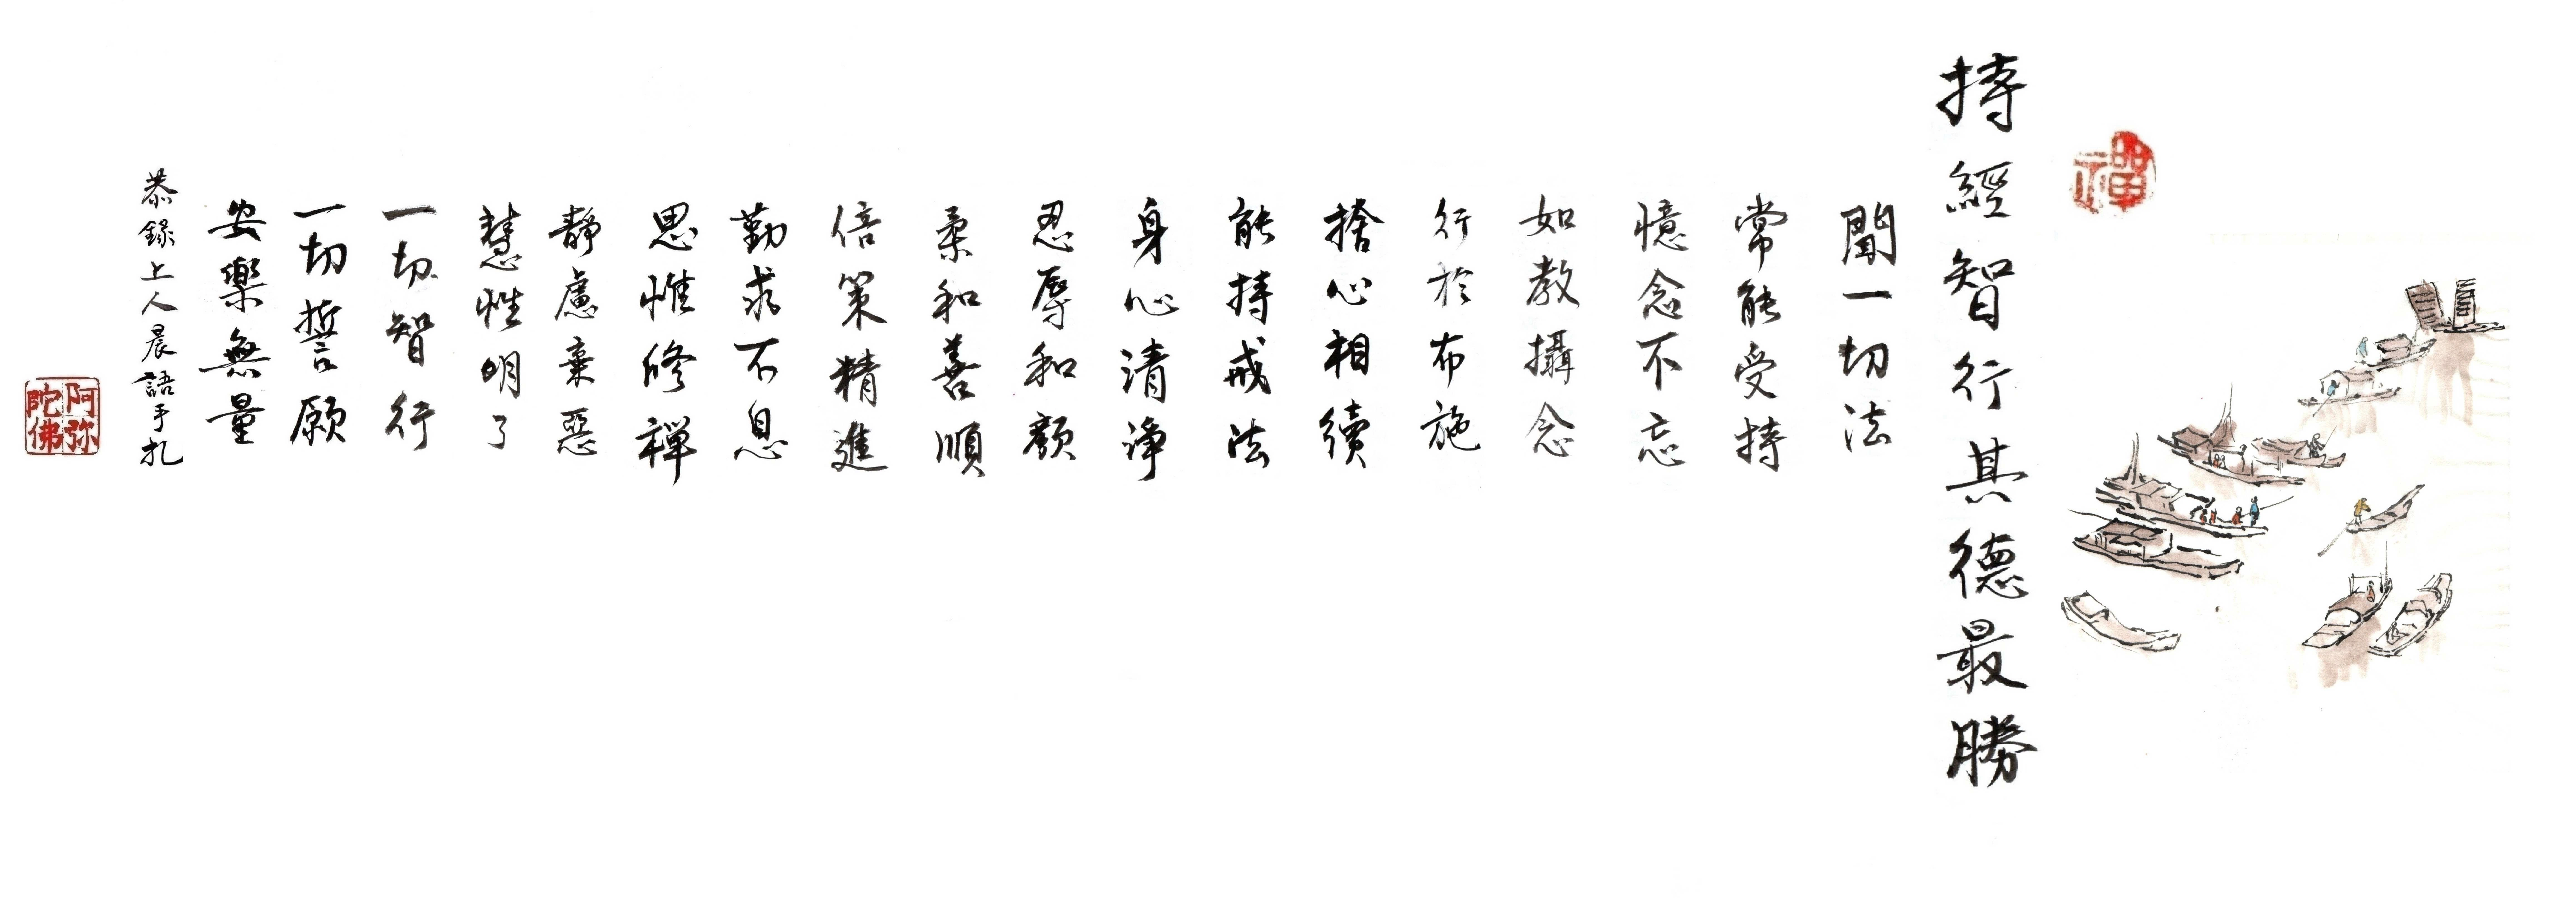 禪
持經智行其德最勝
聞一切法
常能受持
憶念不忘
如教攝念
行於布施
捨心相續
能持戒法
身心清淨
忍辱和顏
柔和善順
倍策精進
勤求不息
思惟修禪
靜慮棄惡
慧性明了
一切智行
一切誓願
安樂無量
恭錄上人晨語手札
阿弥陀佛